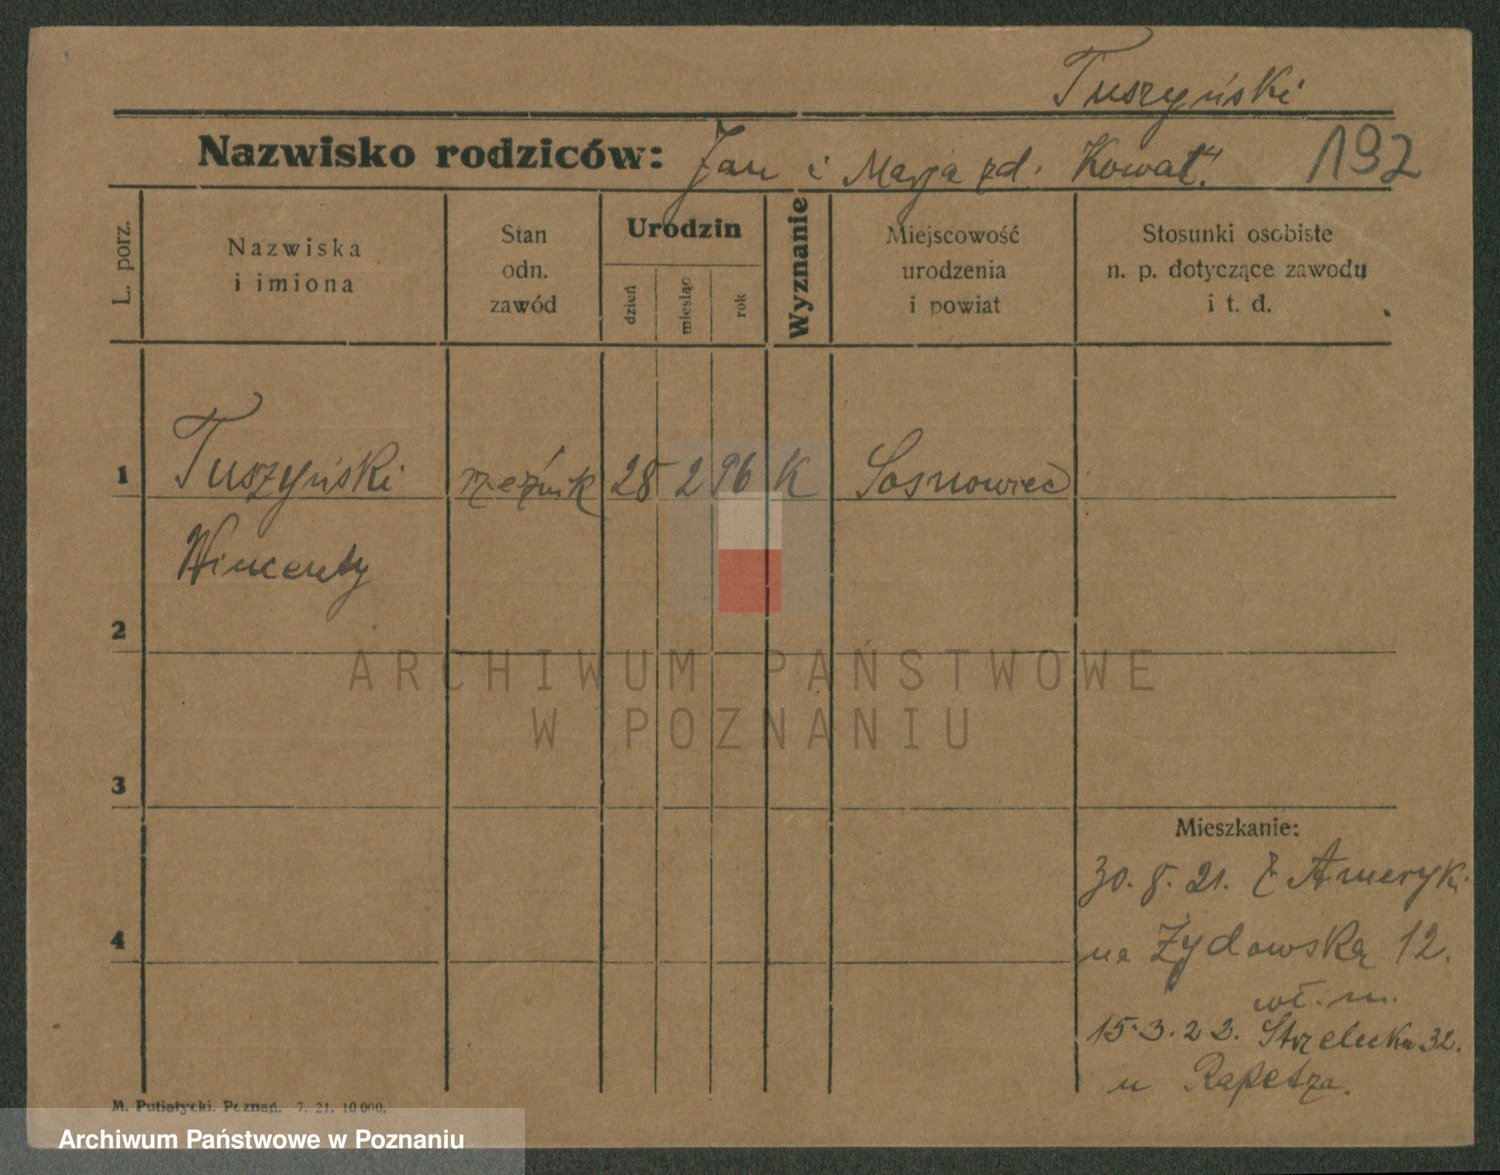 Tuszyński
Nazwisko rodziców: Jan i Marja zd. Kowal. 192
L. porz.
Nazwiska
i imiona
Stan
odn.
zawód
Urodzin
dzień
miesiąc
rok
Wyznanie
Miejscowość
urodzenia
i powiat
Stosunki osobiste
n. p. dotyczące zawodu
i t. d.
1 Tuszyński rzeźnik 28 2 96 K Sosnowiec
Wincenty
2
3
4
Mieszkanie:
30. 8. 21. z Ameryki
na Żydowską 12.
wł. m.
15.3.22. Strzelecka 32.
u
M. Putiatycki. Poznań. 7. 21. 10 000.
ARCHIWUM PAŃSTWOWE
W POZNANIU
Archiwum Państwowe w Poznaniu